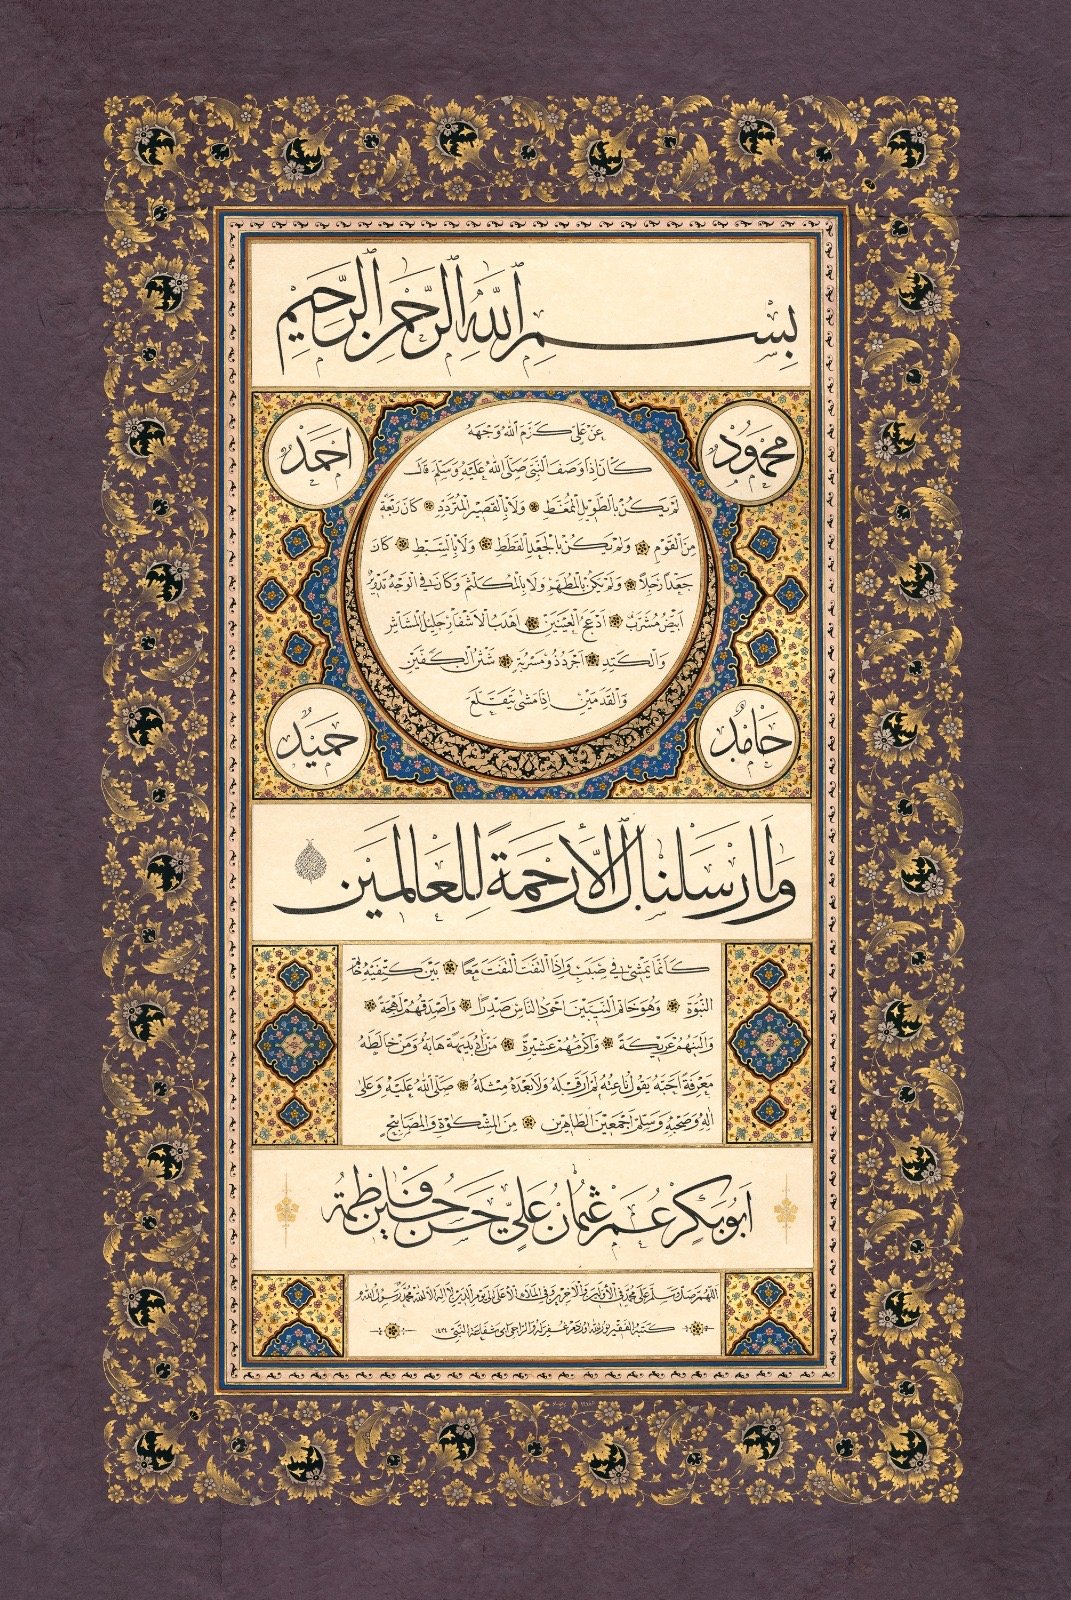 بِسْمِ اللّٰهِ الرَّحْمٰنِ الرَّحِيمِ
مَحْمُودٌ
اَحْمَدُ
عَنْ عَلِيٍّ كَرَّمَ اللّٰهُ وَجْهَهُ
كَانَ اِذَا وَصَفَ النَّبِيَّ صَلَّى اللّٰهُ عَلَيْهِ وَسَلَّمَ قَالَ
لَمْ يَكُنْ بِالطَّوِيلِ الْمُمَّغِطِ ۞ وَلَا بِالْقَصِيرِ الْمُتَرَدِّدِ ۞ كَانَ رَبْعَةً
مِنَ الْقَوْمِ ۞ وَلَمْ يَكُنْ بِالْجَعْدِ الْقَطَطِ ۞ وَلَا بِالسَّبْطِ ۞ كَانَ
جَعْدًا رَجِلًا ۞ وَلَمْ يَكُنْ بِالْمُطَهَّمِ وَلَا بِالْمُكَلْثَمِ وَكَانَ فِي الْوَجْهِ تَدْوِيرٌ
اَبْيَضُ مُشْرَبٌ ۞ اَدْعَجُ الْعَيْنَيْنِ ۞ اَهْدَبُ الْاَشْفَارِ جَلِيلُ الْمُشَاشِ
وَالْكَتَدِ ۞ اَجْرَدُ ذُو مَسْرُبَةٍ ۞ شَثْنُ الْكَفَّيْنِ
وَالْقَدَمَيْنِ اِذَا مَشٰى يَتَقَلَّعُ
حَامِدٌ
حَمِيدٌ
وَمَا اَرْسَلْنَاكَ اِلَّا رَحْمَةً لِلْعَالَمِينَ
كَاَنَّمَا يَمْشِي فِي صَبَبٍ وَاِذَا الْتَفَتَ الْتَفَتَ مَعًا ۞ بَيْنَ كَتِفَيْهِ خَاتَمُ
النُّبُوَّةِ ۞ وَهُوَ خَاتَمُ النَّبِيِّينَ اَجْوَدُ النَّاسِ صَدْرًا ۞ وَاَصْدَقُهُمْ لَهْجَةً ۞
وَاَلْيَنُهُمْ عَرِيكَةً ۞ وَاَكْرَمُهُمْ عَشِيرَةً ۞ مَنْ رَاٰهُ بَدِيهَةً هَابَهُ وَمَنْ خَالَطَهُ
مَعْرِفَةً اَحَبَّهُ يَقُولُ نَاعِتُهُ لَمْ اَرَ قَبْلَهُ وَلَا بَعْدَهُ مِثْلَهُ ۞ صَلَّى اللّٰهُ عَلَيْهِ وَعَلٰى
اٰلِهِ وَصَحْبِهِ وَسَلَّمَ اَجْمَعِينَ الطَّاهِرِينَ ۞ مِنَ الْمِشْكٰوةِ وَالْمَصَابِيحِ
اَبُو بَكْرٍ عُمَرُ عُثْمَانُ عَلِيٌّ حَسَنٌ حُسَيْنٌ وَفَاطِمَةُ
اَللّٰهُمَّ صَلِّ وَسَلِّمْ عَلٰى مُحَمَّدٍ فِي الْاَوَّلِينَ وَالْاٰخِرِينَ وَفِي الْمَلَاِ الْاَعْلٰى اِلٰى يَوْمِ الدِّينِ لَا اِلٰهَ اِلَّا اللّٰهُ مُحَمَّدٌ رَسُولُ اللّٰهِ
كَتَبَهُ الْفَقِيرُ نور الله اوزدم غُفِرَ لَهُ شَفَاعَةَ النَّبِيِّ